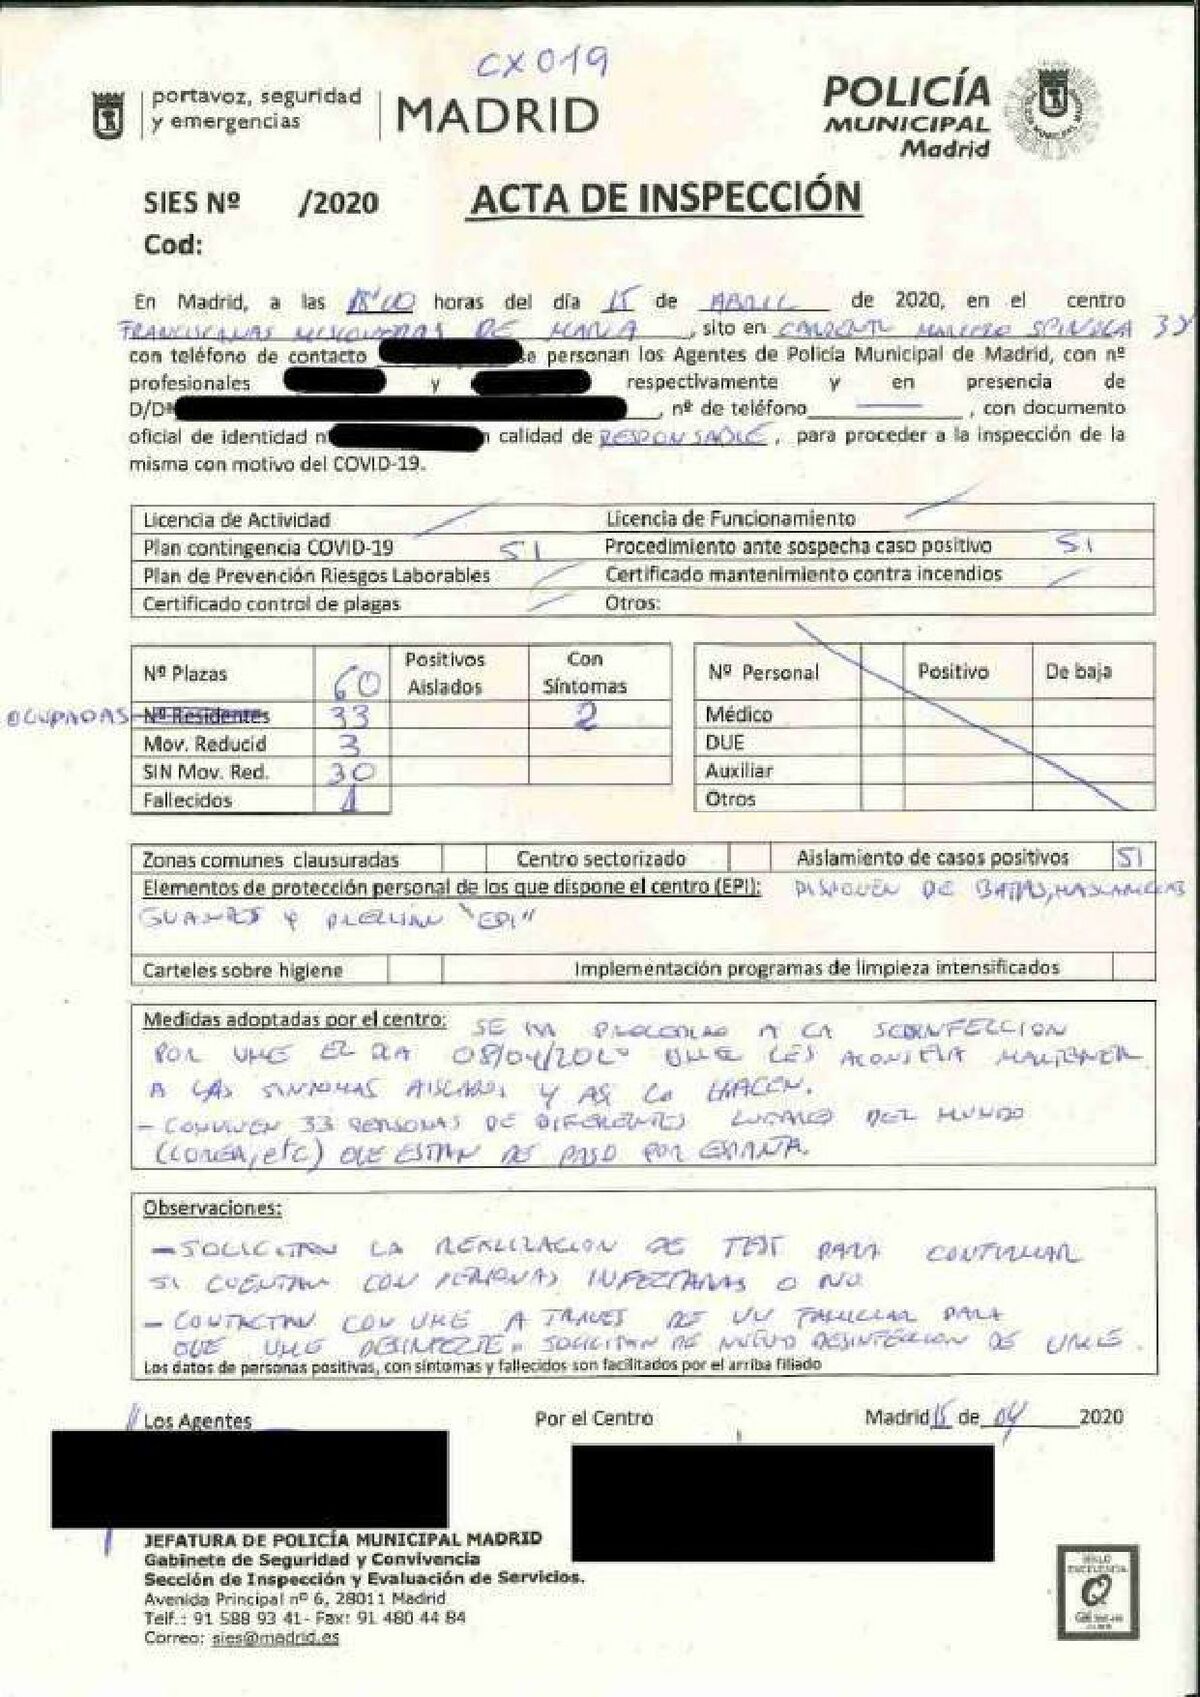 CX019
portavoz, seguridad
y emergencias
MADRID
POLICÍA
MUNICIPAL
Madrid
SIES Nº /2020 ACTA DE INSPECCIÓN
Cod:
En Madrid, a las 18'00 horas del día 15 de ABRIL de 2020, en el centro
FRANCISCANAS MISIONERAS DE MARIA, sito en CARDENAL MARCELO SPINOLA
con teléfono de contacto se personan los Agentes de Policía Municipal de Madrid, con nº
profesionales y respectivamente y en presencia de
D/Dª , nº de teléfono , con documento
oficial de identidad n calidad de RESPONSABLE, para proceder a la inspección de la
misma con motivo del COVID-19.
Licencia de Actividad Licencia de Funcionamiento
Plan contingencia COVID-19 SI Procedimiento ante sospecha caso positivo SI
Plan de Prevención Riesgos Laborables Certificado mantenimiento contra incendios
Certificado control de plagas Otros:
Nº Plazas 60 Positivos Aislados Con Síntomas
OCUPADAS Nº Residentes 33 2
Mov. Reducid 3
SIN Mov. Red. 30
Fallecidos 1
Nº Personal Positivo De baja
Médico
DUE
Auxiliar
Otros
Zonas comunes clausuradas Centro sectorizado Aislamiento de casos positivos SI
Elementos de protección personal de los que dispone el centro (EPI): DISPONEN DE BATAS, MASCARILLAS
GUANTES Y "EPI"
Carteles sobre higiene Implementación programas de limpieza intensificados
Medidas adoptadas por el centro: SE HA PROCEDIDO A LA
POR UME EL DIA 08/04/2020 UME LES ACONSEJA MANTENER
A LAS SINTOMAS AISLADOS Y ASI LO HACEN.
- CONVIVEN 33 PERSONAS DE DIFERENTES LUGARES DEL MUNDO
(COREA, etc) QUE ESTAN DE PASO POR ESPAÑA.
Observaciones:
- SOLICITAN LA REALIZACION DE TEST PARA
SI CUENTAN CON PERSONAS INFECTADAS O NO
- CONTACTAN CON UME A TRAVES DE UN FAMILIAR PARA
QUE UME DESINFECTE. SOLICITAN DE NUEVO DESINFECCION DE UME.
Los datos de personas positivas, con síntomas y fallecidos son facilitados por el arriba filiado
Los Agentes Por el Centro Madrid 15 de 04 2020
JEFATURA DE POLICÍA MUNICIPAL MADRID
Gabinete de Seguridad y Convivencia
Sección de Inspección y Evaluación de Servicios.
Avenida Principal nº 6, 28011 Madrid
Telf.: 91 588 93 41- Fax: 91 480 44 84
Correo: sies@madrid.es